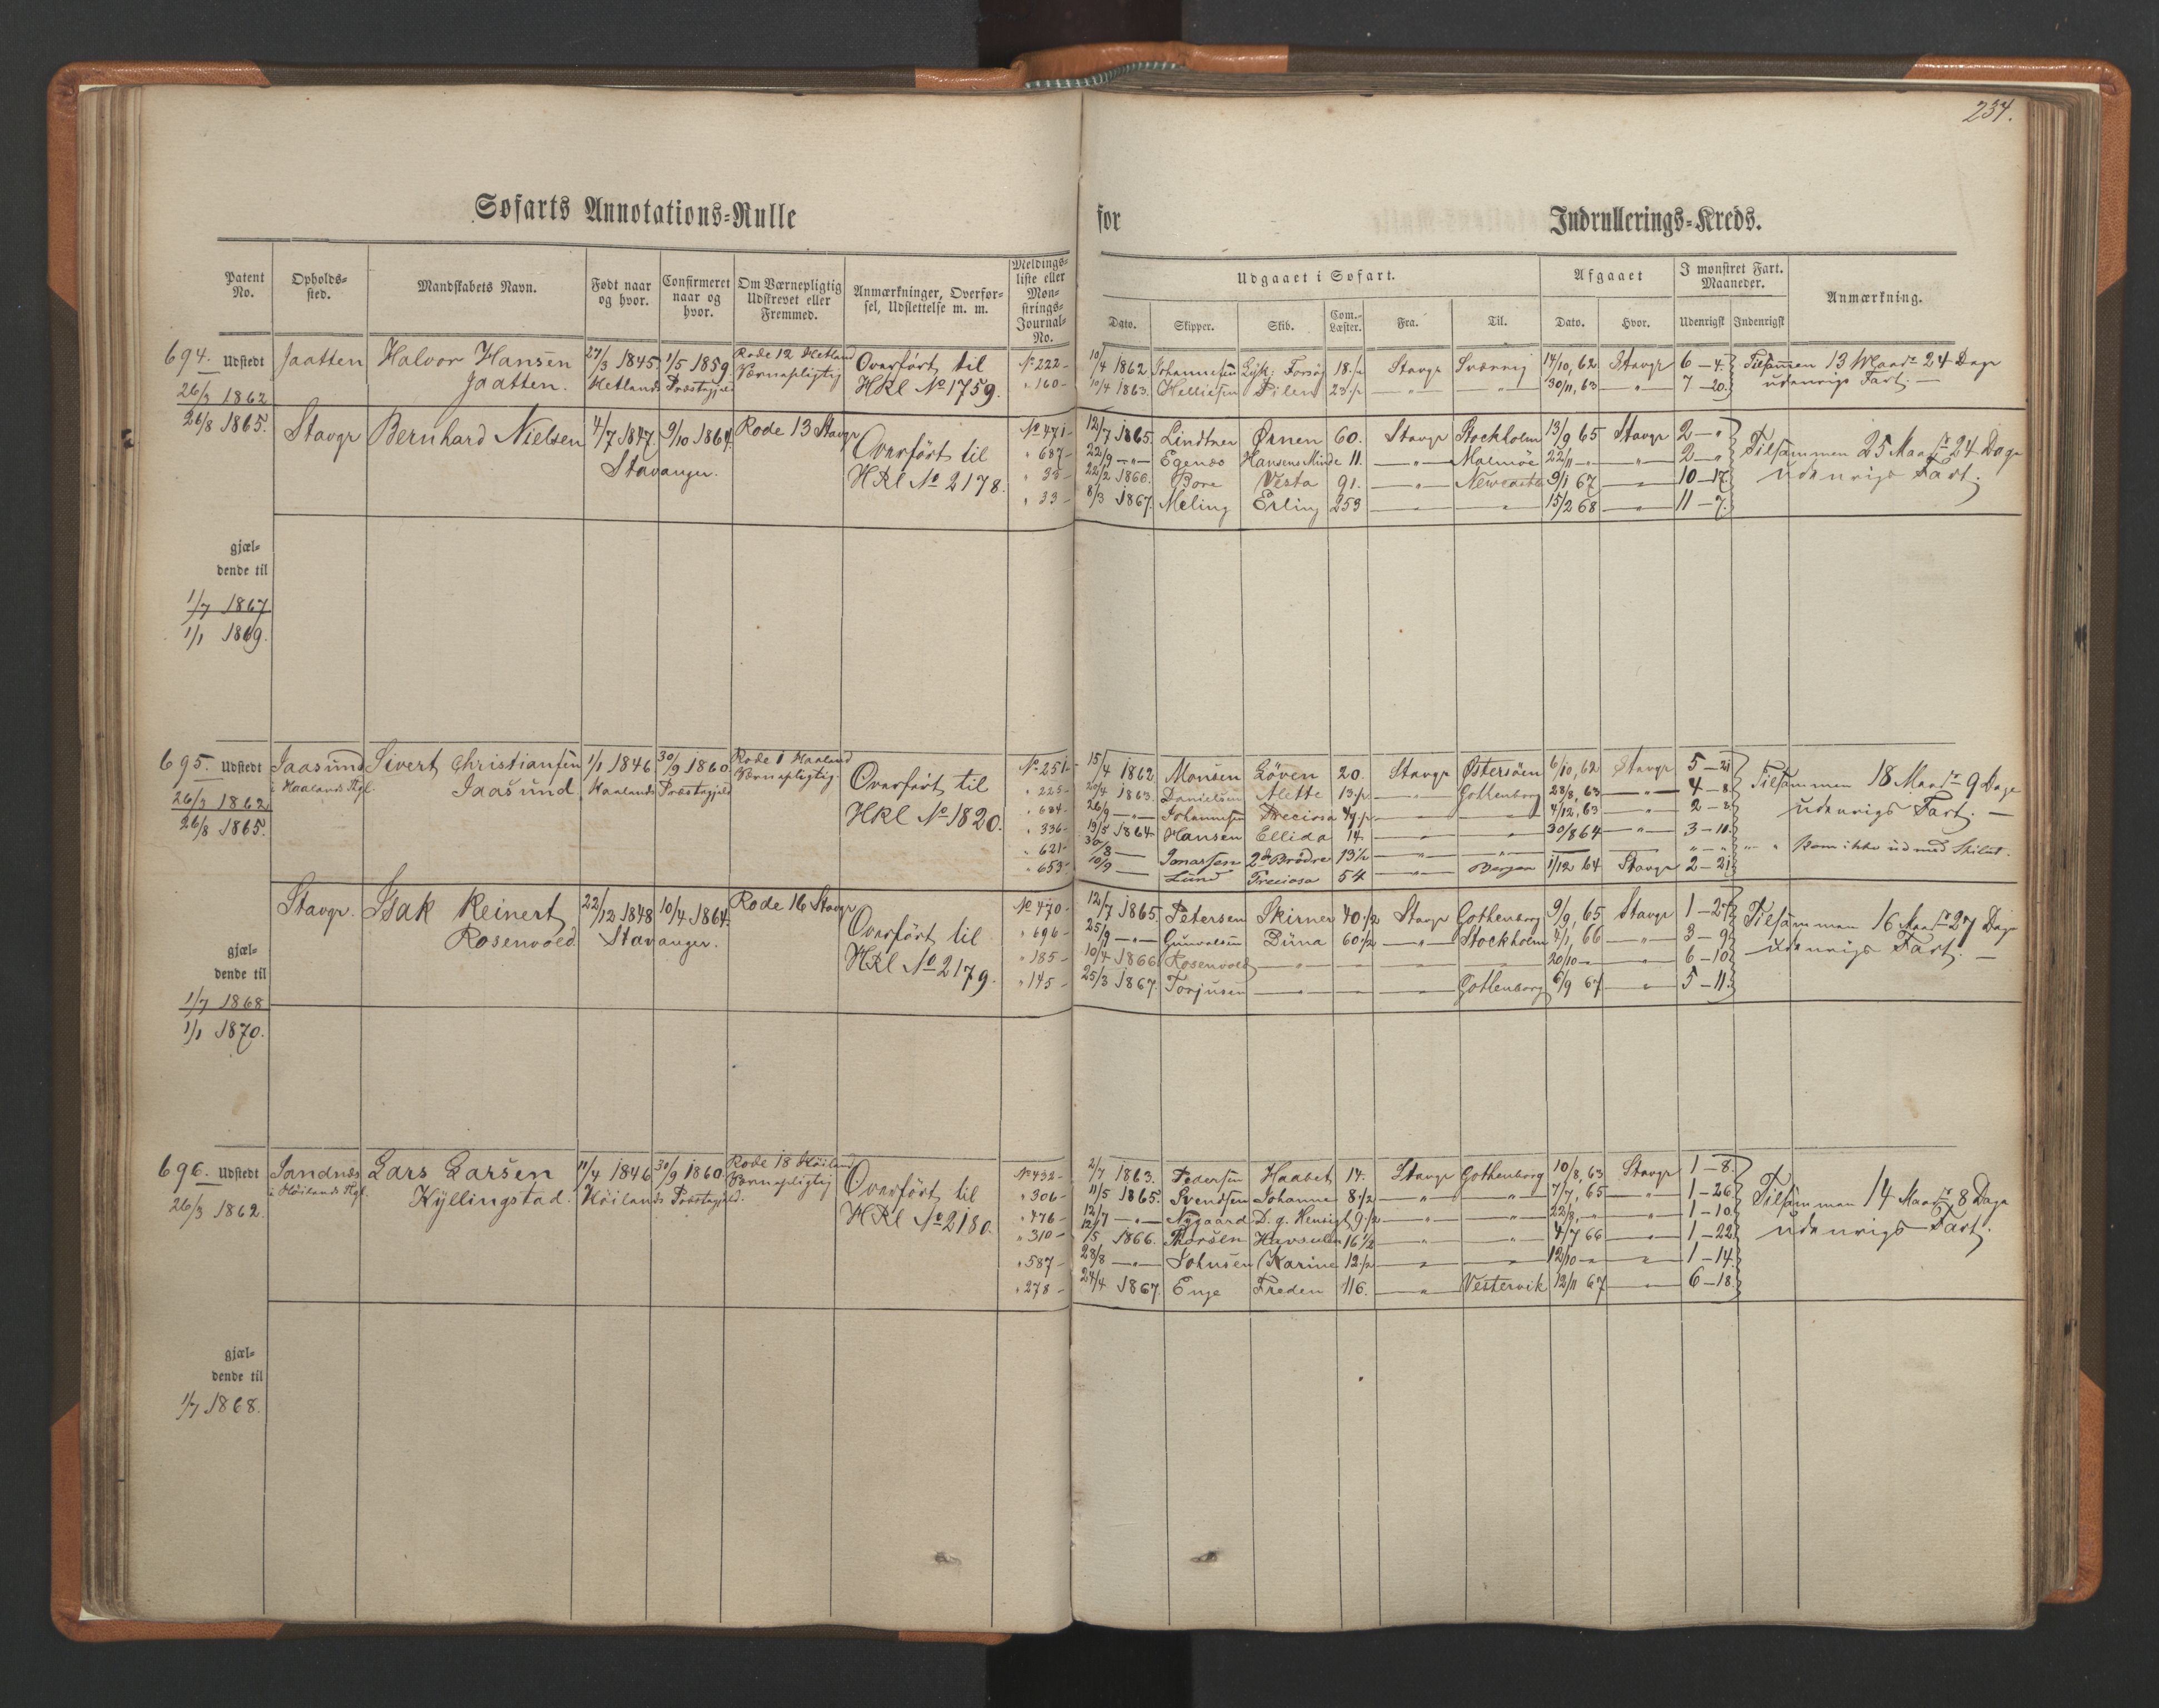 234.
Søfarts Annotations-Rulle for Indrullerings-Kreds.
Patent No. Opholds-sted. Mandskabets Navn. Født naar og hvor. Confirmeret naar og hvor. Om Værnepligtig Udskrevet eller Fremmed. Anmærkninger, Overførsel, Udslettelse m. m. Meldings-liste eller Mønstrings-Journal-No.
Udgaaet i Søfart. Afgaaet I mønstret Fart. Maaneder. Anmærkning.
Dato. Skipper. Skib. Com.-Læster. Fra. Til. Dato. Hvor. Udenrigsk Indenrigsk
694. Udstedt Jaatten Halvor Hansen 27/3 1845. 1/5 1859. Rode 12 Hetland Overført til No 222 - 10/4 1862 Johannesen Lyk. Forsøg 18 1/2 Stavgr Sverrig 14/10, 62 Stavgr 6 - 4. Tilsammen 13 Maadr 24 Dage
26/3 1862 Jaatten. Hetlands Præstegjeld Værnepligtig HRl No 1759. " 160 - 10/4 1863. Helliesen Pilen 23 1/2 — " — — " — 30/11, 63 " 7 - 20. udenrigs Fart. —
26/8 1865. Stavgr Bernhard Nielsen 4/7 1847. 9/10 1864. Rode 13 Stavgr Overført til No 471 - 12/7 1865. Lindtner Ørnen 60. Stavgr Stockholm 13/9 65 Stavgr 2 - " Tilsammen 25 Maadr 24 Dage
Stavanger. HRl No 2178. " 687 - 22/9 — " — Egenæs Hansens Minde 11. — " — Malmøe 22/11 — " — " 2 - " udenrigs Fart.
" 33 - 22/2 1866. Bore Vesta 91. — " — Newcastle 9/1 67 — " — 10 - 17.
" 33 - 8/3 1867. Meling Erling 253 — " — — " — 15/2 68 — " — 11 - 7.
gjæl-
dende til
1/7 1867
1/1 1869.
695. Udstedt Jaasund Sivert Christiansen 1/1 1846 30/9 1860. Rode 1 Haaland Overført til No 251 - 15/4 1862 Monsen Löven 20. Stavgr Østersöen 6/10, 62 Stavgr 5 - 21 Tilsammen 18 Maadr 9 Dage
26/3 1862 i Haalands Pgl. Jaasund Haalands Præstegjeld Værnepligtig HRl No 1820. " 225 - 20/4 1863. Danielsen Alette 13 1/2 — " — Gothenborg 28/8, 63 — " — 4 - 8. udenrigs Fart. —
26/8 1865. " 684 - 26/9 — " — Johannesen Preciosa 49 1/2 — " — — " — 4/12, 63 — " — 2 - 8
" 336 - 19/5 1864 Hansen Ellida 14 — " — " 30/8 64 — " — 3 - 11.
" 621 - 30/8 — Jonassen 2de Brødre 13 1/2 — " — — " — " - " " " Kom ikke ud med Skibet.
" 653 - 10/9 — Lund Preciosa 54 — " — Bergen 1/12 64 Stavgr 2 - 21
Stavgr. Isak Reinert 22/12 1848 10/4 1864. Rode 16 Stavgr Overført til No 470 - 12/7 1865. Petersen Skirner 40 1/2 Stavgr Gothenborg 9/9, 65 Stavgr 1 - 27 Tilsammen 16 Maadr 27 Dage
Rosenvold Stavanger. HRl No 2179. " 696 - 25/9 — " — Gunvalsen Düna 60 1/2 — " — Stockholm 4/1, 66 — " — 3 - 9 udenrigs Fart. —
" 185 - 10/4 1866 Rosenvold — " — — " — — " — 20/10 — " — " 6 - 10
" 145 - 25/3 1867. Torjusen — " — — " — — " — Gothenborg 6/9 67 — " — 5 - 11.
gjæl-
dende til
1/7 1868
1/1 1870.
696. Udstedt Sandnæs Lars Larsen 11/4 1846 30/9 1860. Rode 18 Høiland Overført til No 432 - 2/7 1863. Pedersen Haabet 14. Stavgr Gothenborg 10/8, 63 Stavgr 1 - 8. Tilsammen 14 Maadr 8 Dage
26/3 1862. i Høilands Pgl. Kyllingstad. Høilands Præstegjeld. Værnepligtig HRl No 2180. " 306 - 11/5 1865. Svendsen Johanne 8 1/2 — " — " 7/7, 65 — " — 1 - 26. udenrigs Fart.
" 476 - 12/7 — " — Nygaard D. g. Hensigt 9 1/2 — " — " 22/8, — " 1 - 10.
" 310 - 1/5 1866. Thorsen Havsulen 16 1/2 — " — " 4/7 66 — " — 1 - 22
" 587 - 28/8 — " — Johnsen Karine 12 1/2 — " — — " — 12/10 — " — " 1 - 14.
" 278 - 24/4 1867. Enge Freden 116. — " — Vestervik 12/11 67 — " — 6 - 18.
gjæl-
dende til
1/7 1868.